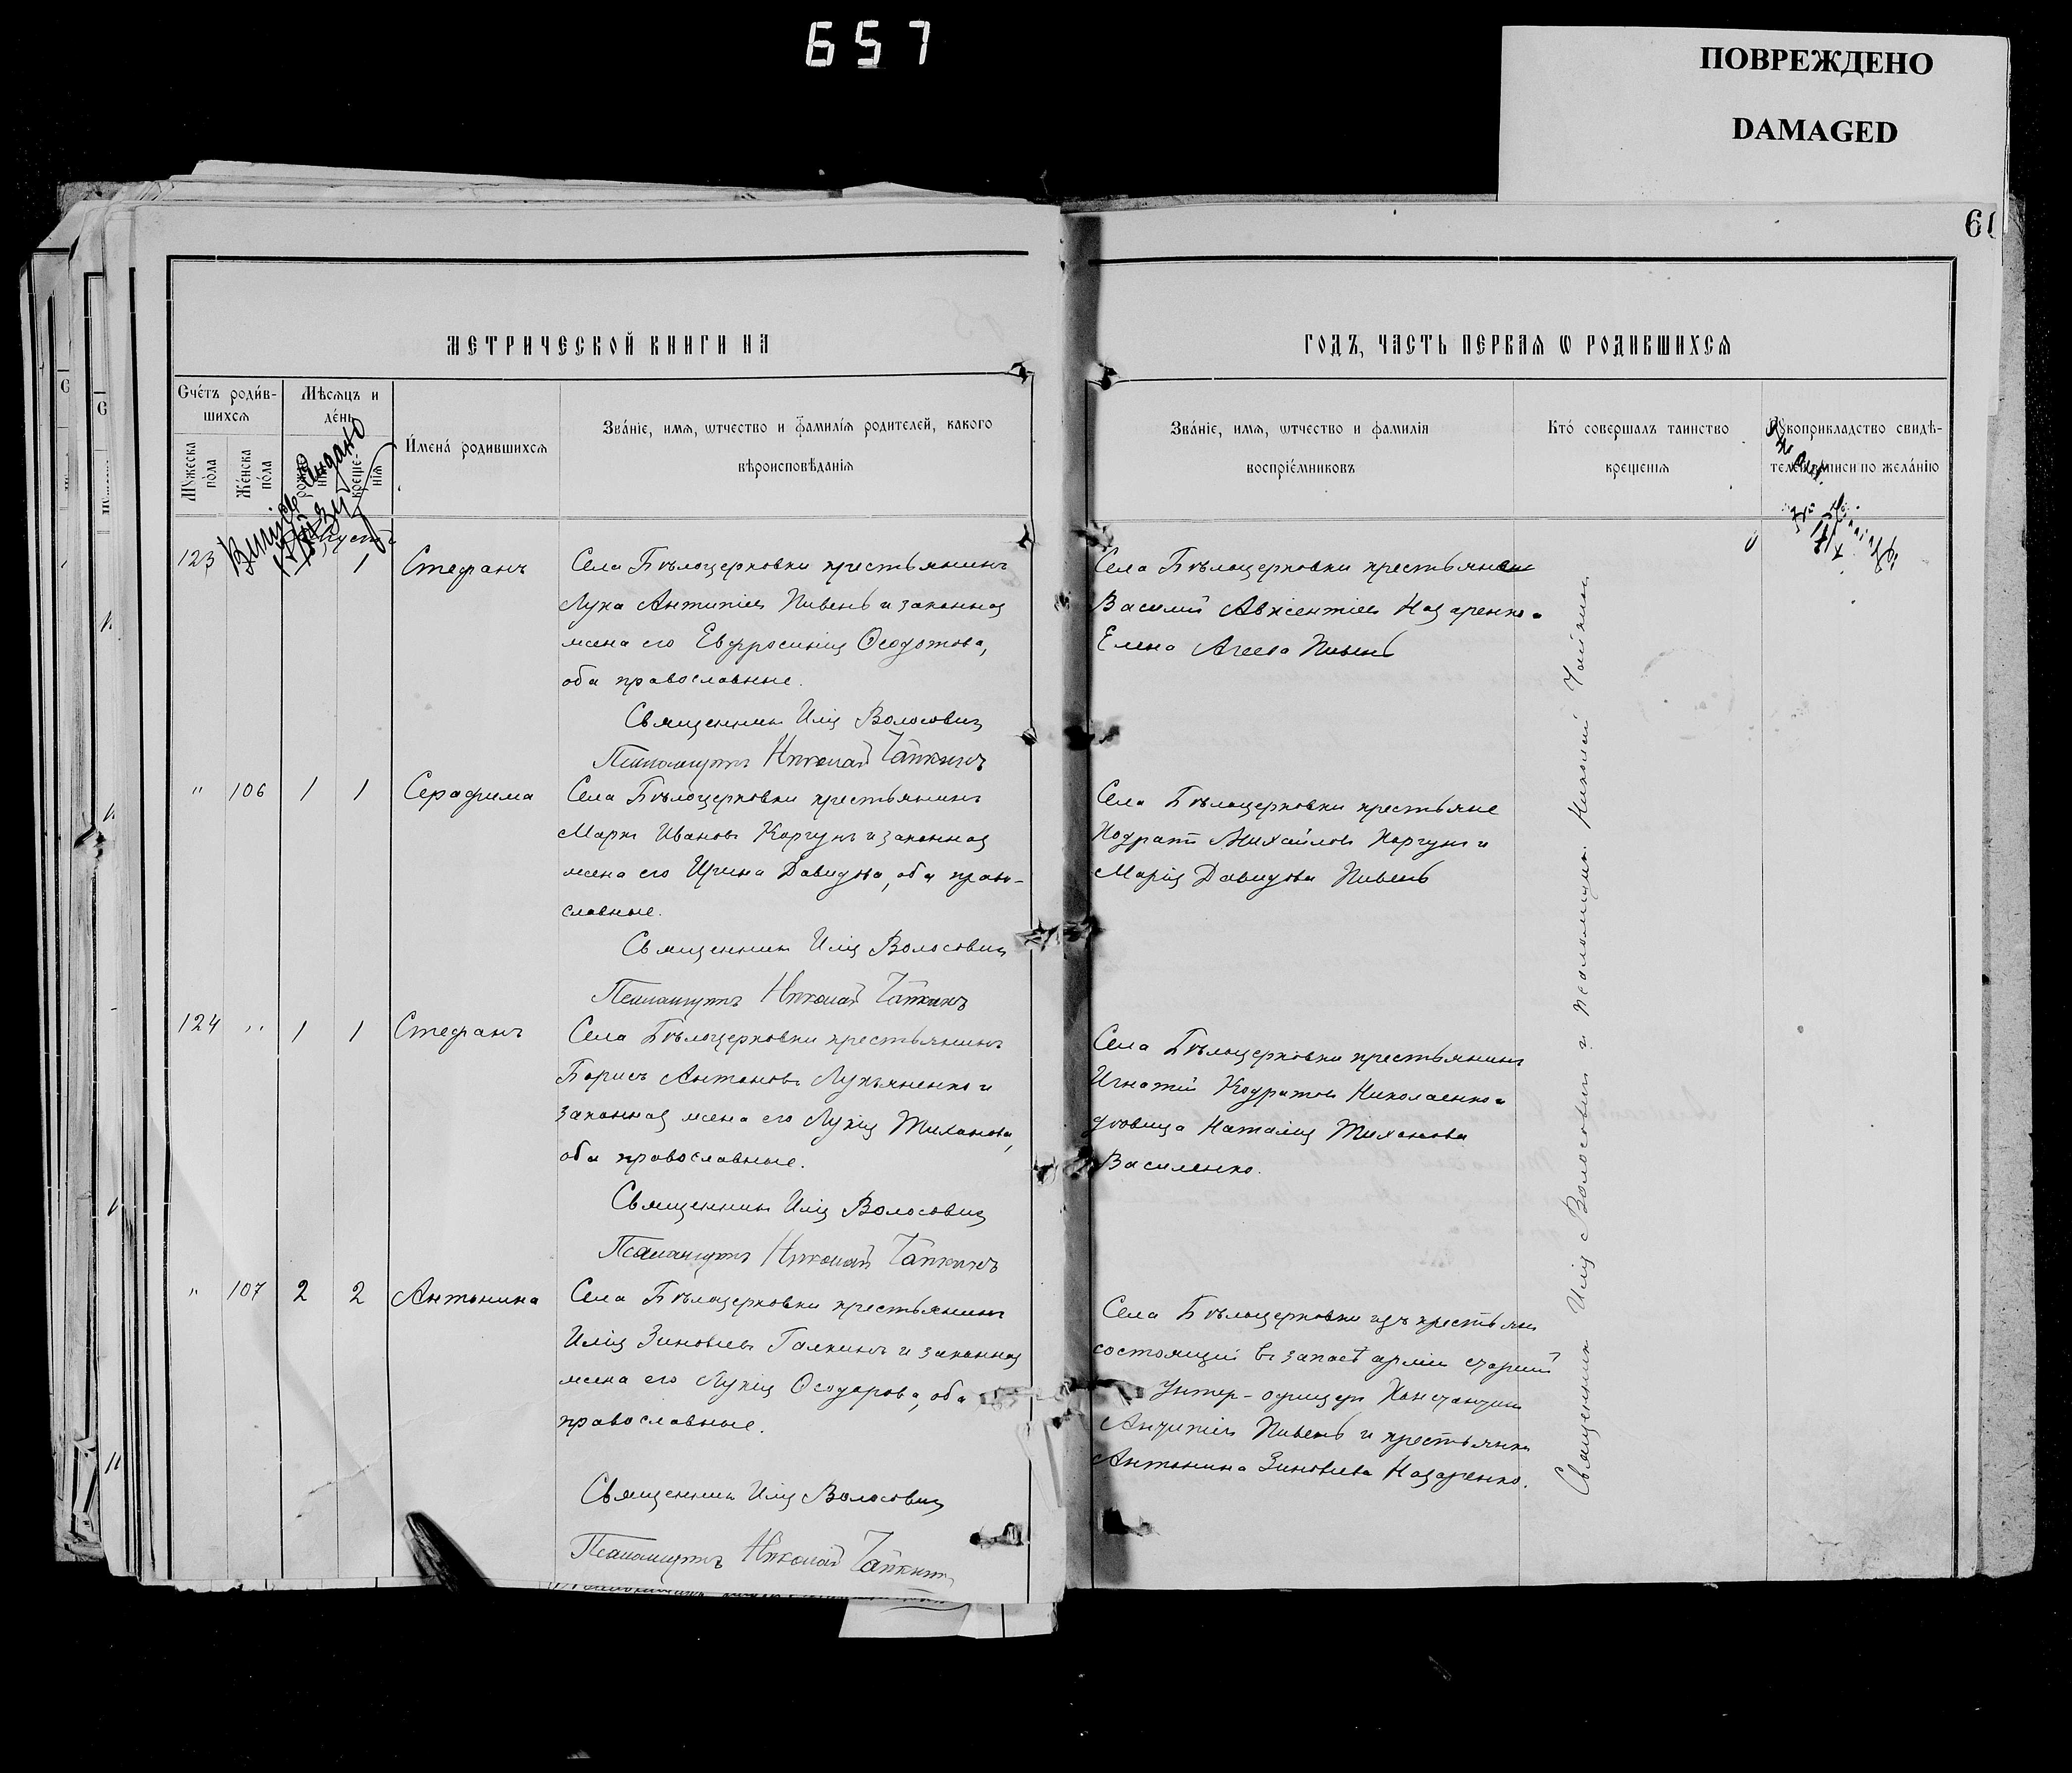 657
ПОВРЕЖДЕНО
DAMAGED
МЕТРИЧЕСКОЙ КНИГИ НА
Счетъ родив-
шихся
Мѣсяцъ и
день
Мужеска
пола
Женска
пола
рожде-
нія
креще-
нія
Имена родившихся
Званіе, имя, отчество и фамилія родителей, какого
вѣроисповѣданія
123
1
Стефанъ
Села Бѣлоцерковки крестьянинъ
Лука Антипіевъ Пивень и законная
жена его Евфросинія Ѳеодотова,
оба православные.
Священникъ Илія Волосовичъ
Псаломщикъ Николай Чапкинъ
" 106 1 1 Серафима
Села Бѣлоцерковки крестьянинъ
Маркъ Ивановъ Коргунъ и законная
жена его Ирина Давидова, оба право-
славные.
Священникъ Илія Волосовичъ
Псаломщикъ Николай Чапкинъ
124 " 1 1 Стефанъ
Села Бѣлоцерковки крестьянинъ
Борисъ Антоновъ Лукьяненко и
законная жена его Лукія Тихонова,
оба православные.
Священникъ Илія Волосовичъ
Псаломщикъ Николай Чапкинъ
" 107 2 2 Антонина
Села Бѣлоцерковки крестьянинъ
Илія Зиновіевъ Галкинъ и законная
жена его Лукія Ѳеодорова, оба
православные.
Священникъ Илія Волосовичъ
Псаломщикъ Николай Чапкинъ
ГОДЪ, ЧАСТЬ ПЕРВАЯ О РОДИВШИХСЯ
Званіе, имя, отчество и фамилія
воспріемниковъ
Кто совершалъ таинство
крещенія
Рукоприкладство свидѣ-
телей записи по желанію
Села Бѣлоцерковки крестьяне
Василій Авксентіевъ Назаренко и
Елена Агеева Пивень
Села Бѣлоцерковки крестьяне
Кодратъ Михайловъ Коргунъ и
Марія Давидова Пивень
Села Бѣлоцерковки крестьянинъ
Игнатій Кодратовъ Николаенко и
вдовица Наталія Тихонова
Василенко.
Села Бѣлоцерковки изъ крестьянъ
состоящій въ запасѣ арміи старшій
Унтер-офицеръ Константинъ
Антипіевъ Пивень и крестьянка
Антонина Зиновіева Назаренко.
Священникъ Илія Волосовичъ и псаломщикъ Николай Чапкинъ